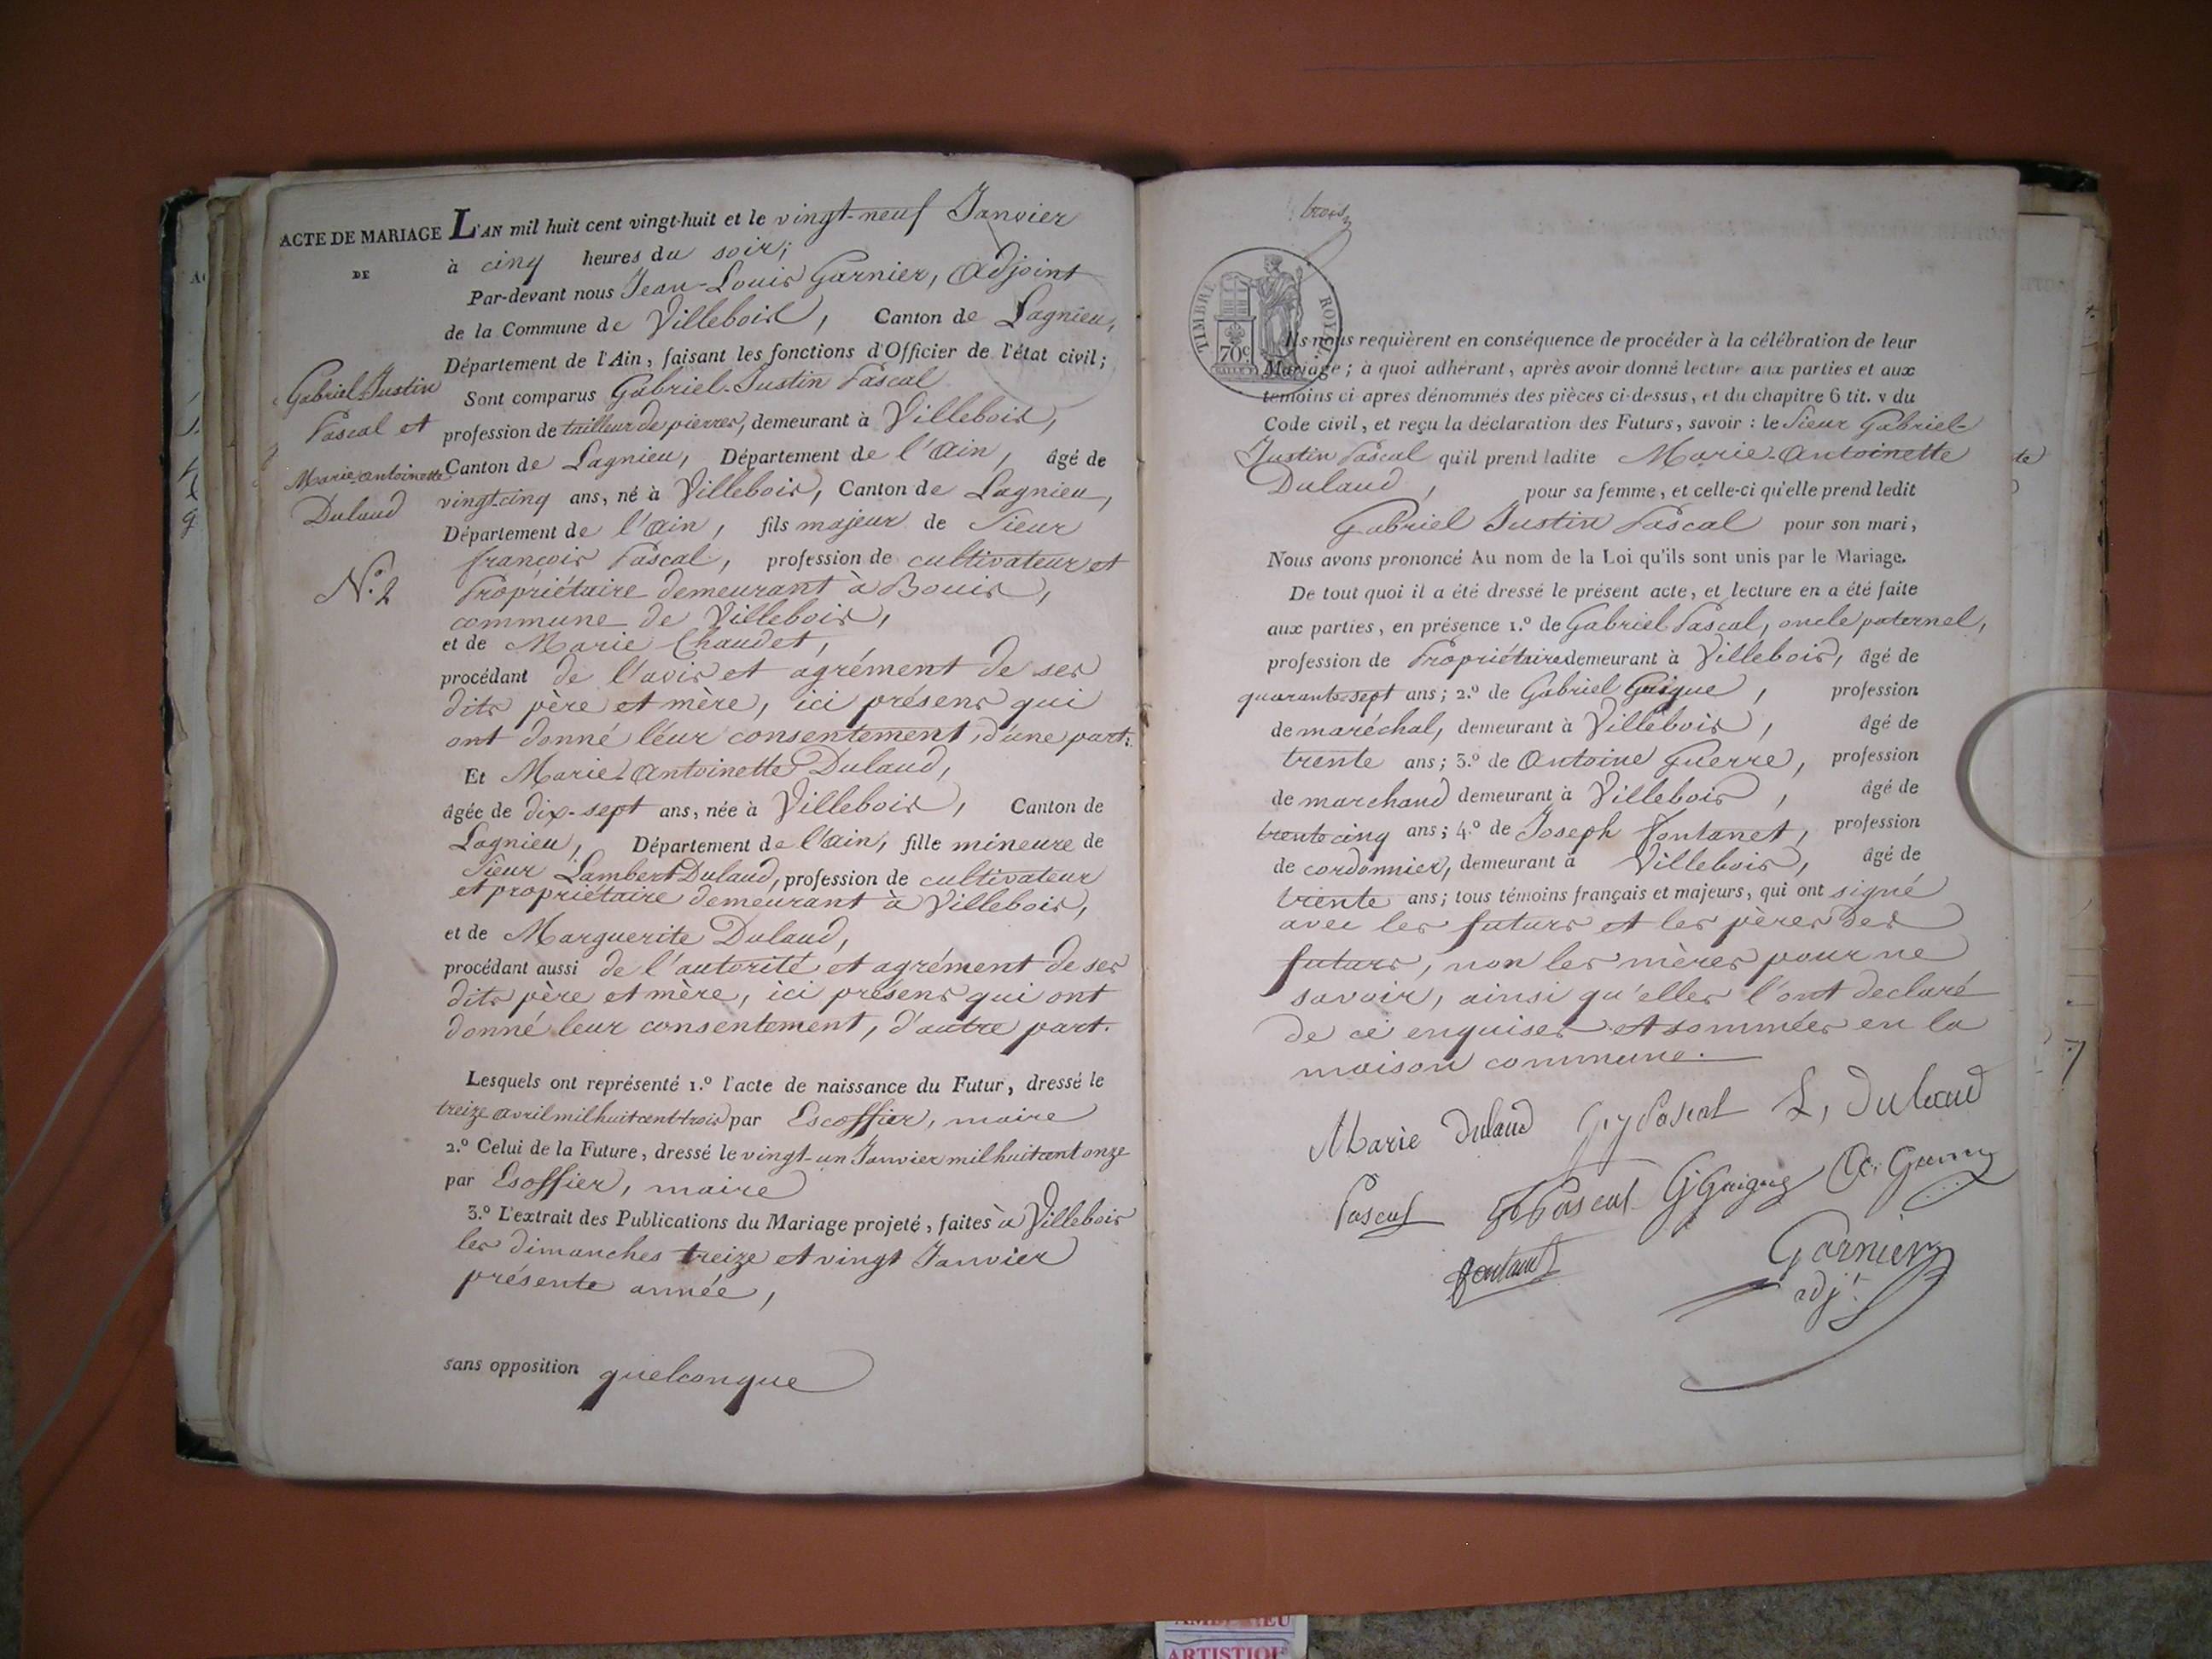 ACTE DE MARIAGE
DE
Gabriel-Justin
Pascal et
Marie-antoinette
Dulaud
N.º 2
L'AN mil huit cent vingt-huit et le vingt-neuf Janvier
à cinq heures du soir;
Par-devant nous Jean-Louis Garnier, Adjoint
de la Commune de Villebois, Canton de Lagnieu,
Département de l'Ain, faisant les fonctions d'Officier de l'état civil;
Sont comparus Gabriel-Justin Pascal
profession de tailleur de pierres, demeurant à Villebois,
Canton de Lagnieu, Département de l'Ain, âgé de
vingt-cinq ans, né à Villebois, Canton de Lagnieu,
Département de l'ain, fils majeur de Sieur
françois Pascal, profession de cultivateur et
Propriétaire demeurant à Bouis,
commune de Villebois,
et de Marie Chaudet,
procédant de l'avis et agrément de ses
dits père et mère, ici présens qui
ont donné leur consentement, d'une part.
Et Marie-Antoinette Dulaud,
âgée de dix-sept ans, née à Villebois, Canton de
Lagnieu, Département de l'ain, fille mineure de
Sieur Lambert Dulaud, profession de cultivateur
et propriétaire demeurant à Villebois,
et de Marguerite Dulaud,
procédant aussi de l'autorité et agrément de ses
dits père et mère, ici présens qui ont
donné leur consentement, d'autre part.
Lesquels ont représenté 1.º l'acte de naissance du Futur, dressé le
treize avril mil huit cent trois par Escoffier, maire
2.º Celui de la Future, dressé le vingt-un Janvier mil huit cent onze
par Esoffier, maire
3.º L'extrait des Publications du Mariage projeté, faites à Villebois
les dimanches treize et vingt Janvier
présente année,
sans opposition quelconque
trois
TIMBRE ROYAL
70c
Ils nous requièrent en conséquence de procéder à la célébration de leur
Mariage; à quoi adhérant, après avoir donné lecture aux parties et aux
témoins ci-après dénommés des pièces ci-dessus, et du chapitre 6 tit. v du
Code civil, et reçu la déclaration des Futurs, savoir: le Sieur Gabriel-
Justin Pascal qu'il prend ladite Marie-Antoinette
Dulaud, pour sa femme, et celle-ci qu'elle prend ledit
Gabriel Justin Pascal pour son mari,
Nous avons prononcé Au nom de la Loi qu'ils sont unis par le Mariage.
De tout quoi il a été dressé le présent acte, et lecture en a été faite
aux parties, en présence 1.º de Gabriel Pascal, oncle paternel,
profession de Propriétaire demeurant à Villebois, âgé de
quarante-sept ans; 2.º de Gabriel Guigue, profession
de maréchal, demeurant à Villebois, âgé de
trente ans; 3.º de Antoine Guerre, profession
de marchand demeurant à Villebois, âgé de
trente cinq ans; 4.º de Joseph Fontanet, profession
de cordonnier, demeurant à Villebois, âgé de
trente ans; tous témoins français et majeurs, qui ont signé
avec les futurs et les pères des
futurs, non les mères pour ne
savoir, ainsi qu'elles l'ont declaré
de ce enquises et sommées en la
maison commune.
Marie Dulaud Pascal L, Dulaud
Pascal Pascal G Guigue
Garnier
adj.t
ARTISTIQU